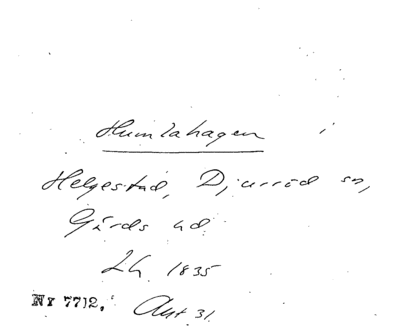 Humlahagen i
Helgestad, Djurröd sn,
Gärds hd.
Lh. 1835
Nr 7712. Akt 31.